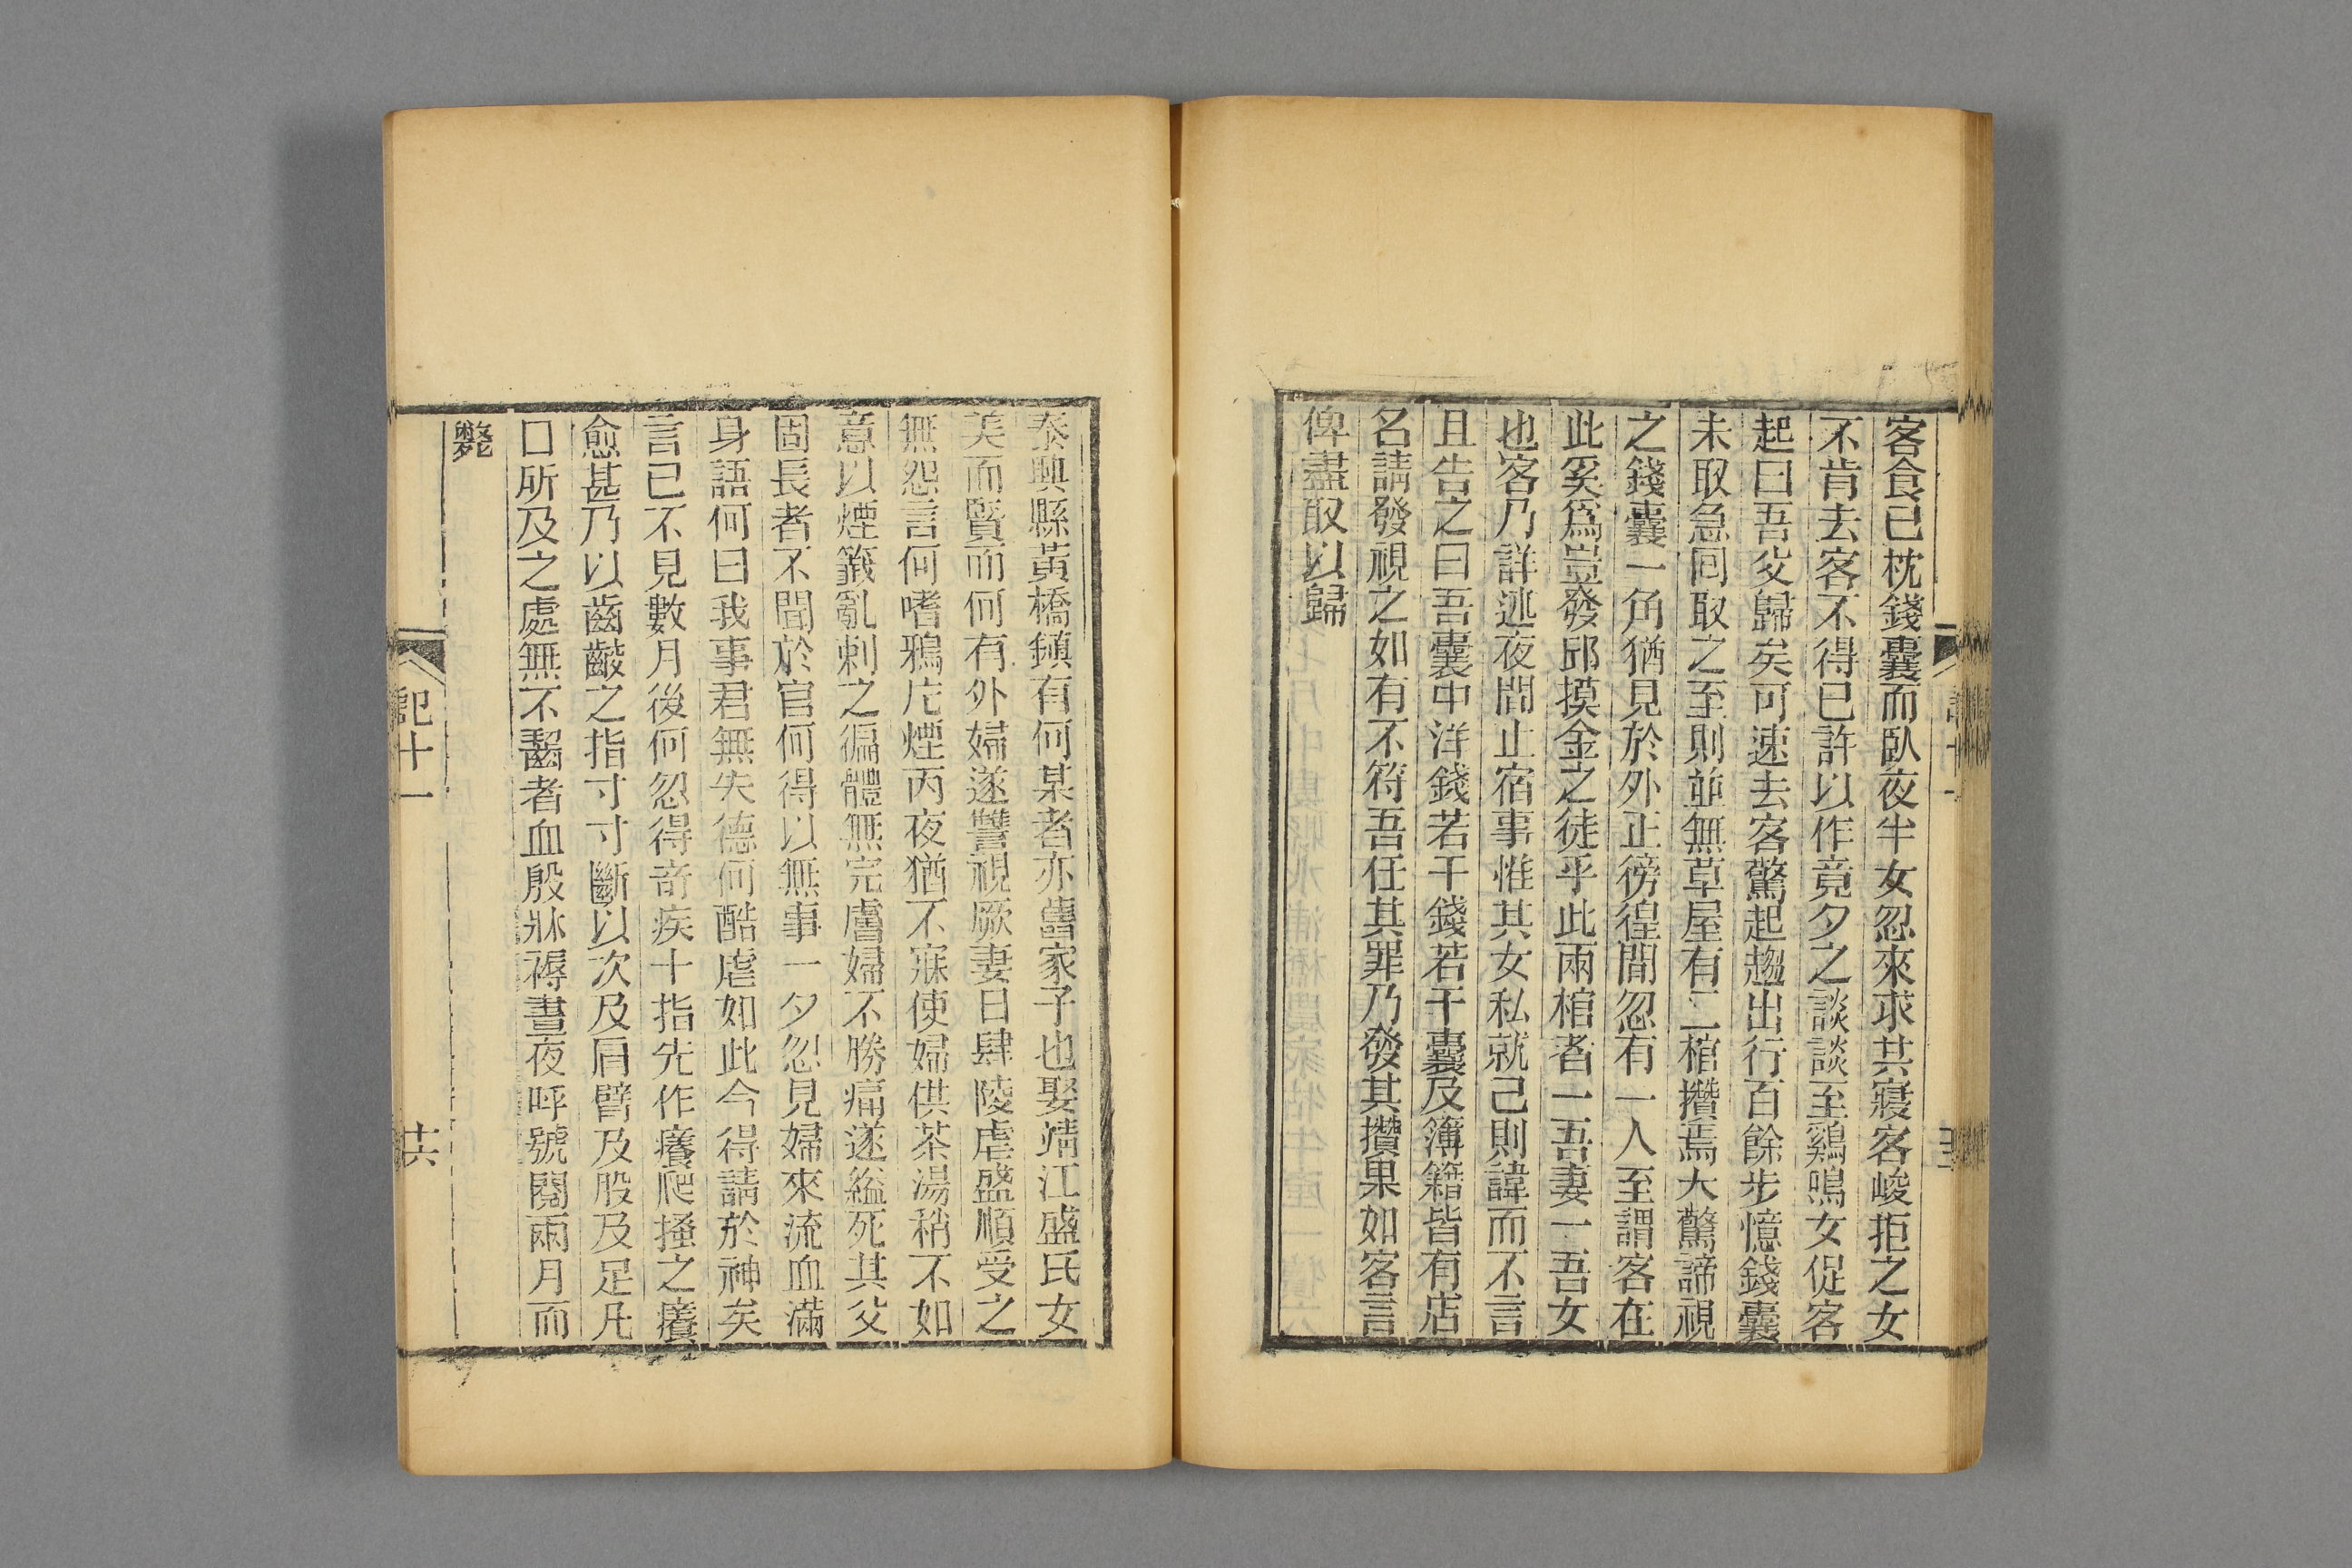 客食已枕錢囊而臥夜半女忽來求共寢客峻拒之女
不肯去客不得已許以作竟夕之談談至鷄鳴女促客
起曰吾父歸矣可速去客驚起趨出行百餘步憶錢囊
未取急回取之至則並無草屋有二棺攢焉大驚諦視
之錢囊一角猶見於外正徬徨間忽有一人至謂客在
此奚爲豈發邱摸金之徒乎此兩棺者一吾妻一吾女
也客乃詳述夜間止宿事惟其女私就己則諱而不言
且告之曰吾囊中洋錢若干錢若干囊及簿籍皆有店
名請發視之如有不符吾任其罪乃發其攢果如客言
俾盡取以歸
泰興縣黃橋鎮有何某者亦舊家子也娶靖江盛氏女
美而賢而何有外婦遂讐視厥妻日肆陵虐盛順受之
無怨言何嗜鴉片煙丙夜猶不寐使婦供茶湯稍不如
意以煙籤亂刺之徧體無完膚婦不勝痛遂縊死其父
固長者不聞於官何得以無事一夕忽見婦來流血滿
身語何曰我事君無失德何酷虐如此今得請於神矣
言已不見數月後何忽得奇疾十指先作癢爬搔之癢
愈甚乃以齒齩之指寸寸斷以次及肩臂及股及足凡
口所及之處無不齧者血殷牀褥晝夜呼號閱兩月而
斃
記十一
十六